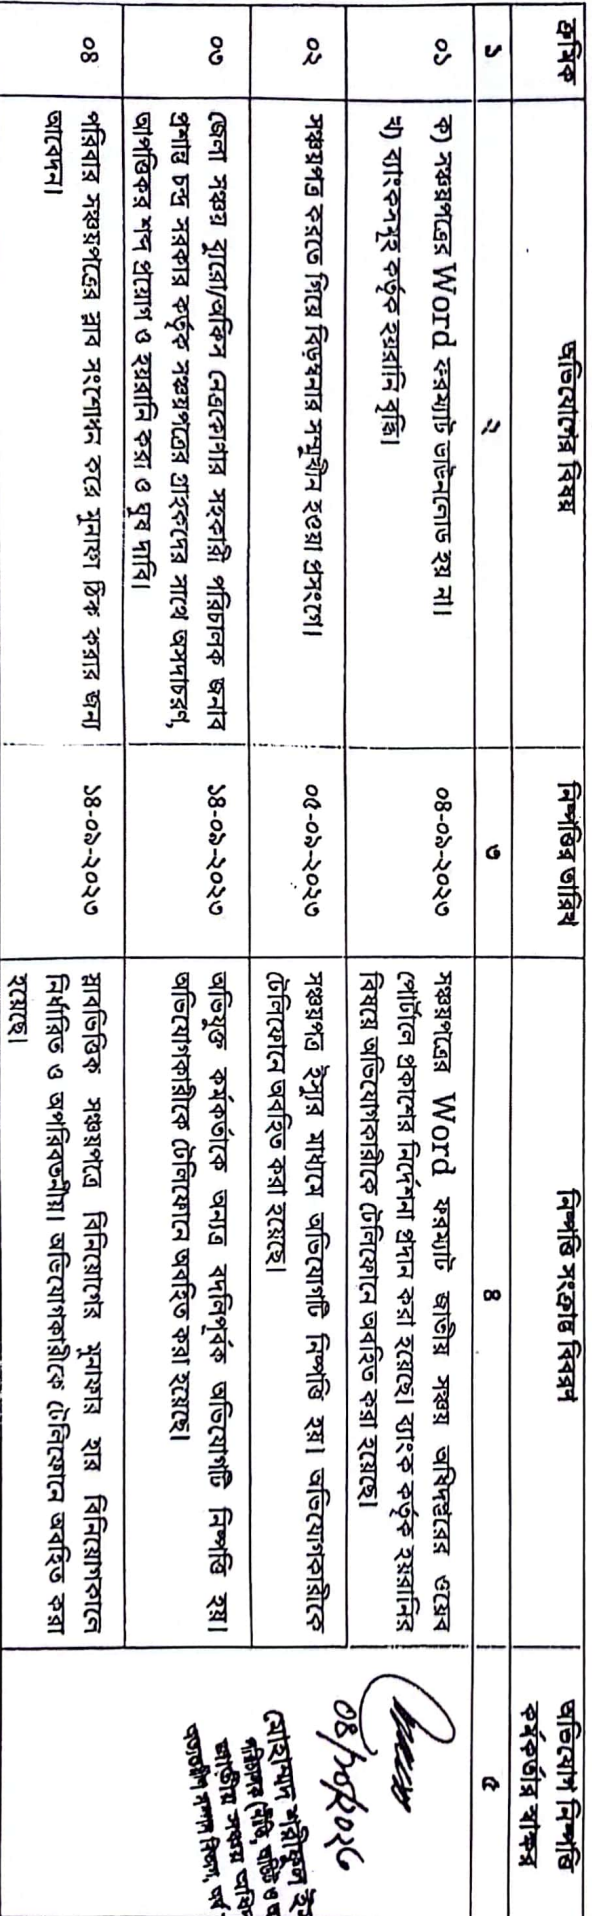 ক্রমিক
অভিযোগের বিষয়
নিষ্পত্তির তারিখ
নিষ্পত্তি সংক্রান্ত বিবরণ
অভিযোগ নিষ্পত্তি
কর্মকর্তার স্বাক্ষর
১
২
৩
৪
৫
০১
ক) সঞ্চয়পত্রের Word ফরম্যাট ডাউনলোড হয় না।
খ) ব্যাংকসমূহ কর্তৃক হয়রানি বৃদ্ধি।
০৪-০৯-২০২৩
সঞ্চয়পত্রের Word ফরম্যাট জাতীয় সঞ্চয় অধিদপ্তরের ওয়েব
পোর্টালে প্রকাশের নির্দেশনা প্রদান করা হয়েছে। ব্যাংক কর্তৃক হয়রানির
বিষয়ে অভিযোগকারীকে টেলিফোনে অবহিত করা হয়েছে।
০২
সঞ্চয়পত্র করতে গিয়ে বিড়ম্বনার সম্মুখীন হওয়া প্রসংগে।
০৫-০৯-২০২৩
সঞ্চয়পত্র ইস্যুর মাধ্যমে অভিযোগটি নিষ্পত্তি হয়। অভিযোগকারীকে
টেলিফোনে অবহিত করা হয়েছে।
০৩
জেলা সঞ্চয় ব্যুরো/অফিস নেত্রকোণার সহকারী পরিচালক জনাব
প্রশান্ত চন্দ্র সরকার কর্তৃক সঞ্চয়পত্রের গ্রাহকদের সাথে অসদাচরণ,
আপত্তিকর শব্দ প্রয়োগ ও হয়রানি করা ও ঘুষ দাবি।
১৪-০৯-২০২৩
অভিযুক্ত কর্মকর্তাকে অন্যত্র বদলিপূর্বক অভিযোগটি নিষ্পত্তি হয়।
অভিযোগকারীকে টেলিফোনে অবহিত করা হয়েছে।
০৪
পরিবার সঞ্চয়পত্রের স্লাব সংশোধন করে মুনাফা ঠিক করার জন্য
আবেদন।
১৪-০৯-২০২৩
স্লাবভিত্তিক সঞ্চয়পত্রে বিনিয়োগের মুনাফার হার বিনিয়োগকালে
নির্ধারিত ও অপরিবর্তনীয়। অভিযোগকারীকে টেলিফোনে অবহিত করা
হয়েছে।
০৪/১০/২০২৩
মোহাম্মদ শরীফুল
পরিচালক (নীতি, অডিট ও
জাতীয় সঞ্চয়
অভ্যন্তরীণ সম্পদ বিভাগ, অর্থ